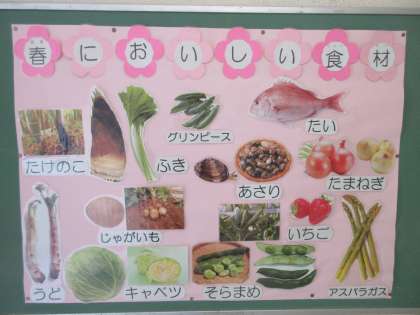 春においしい食材
グリンピース
たい
たけのこ
ふき
あさり
たまねぎ
じゃがいも
いちご
うど
キャベツ
そらまめ
アスパラガス